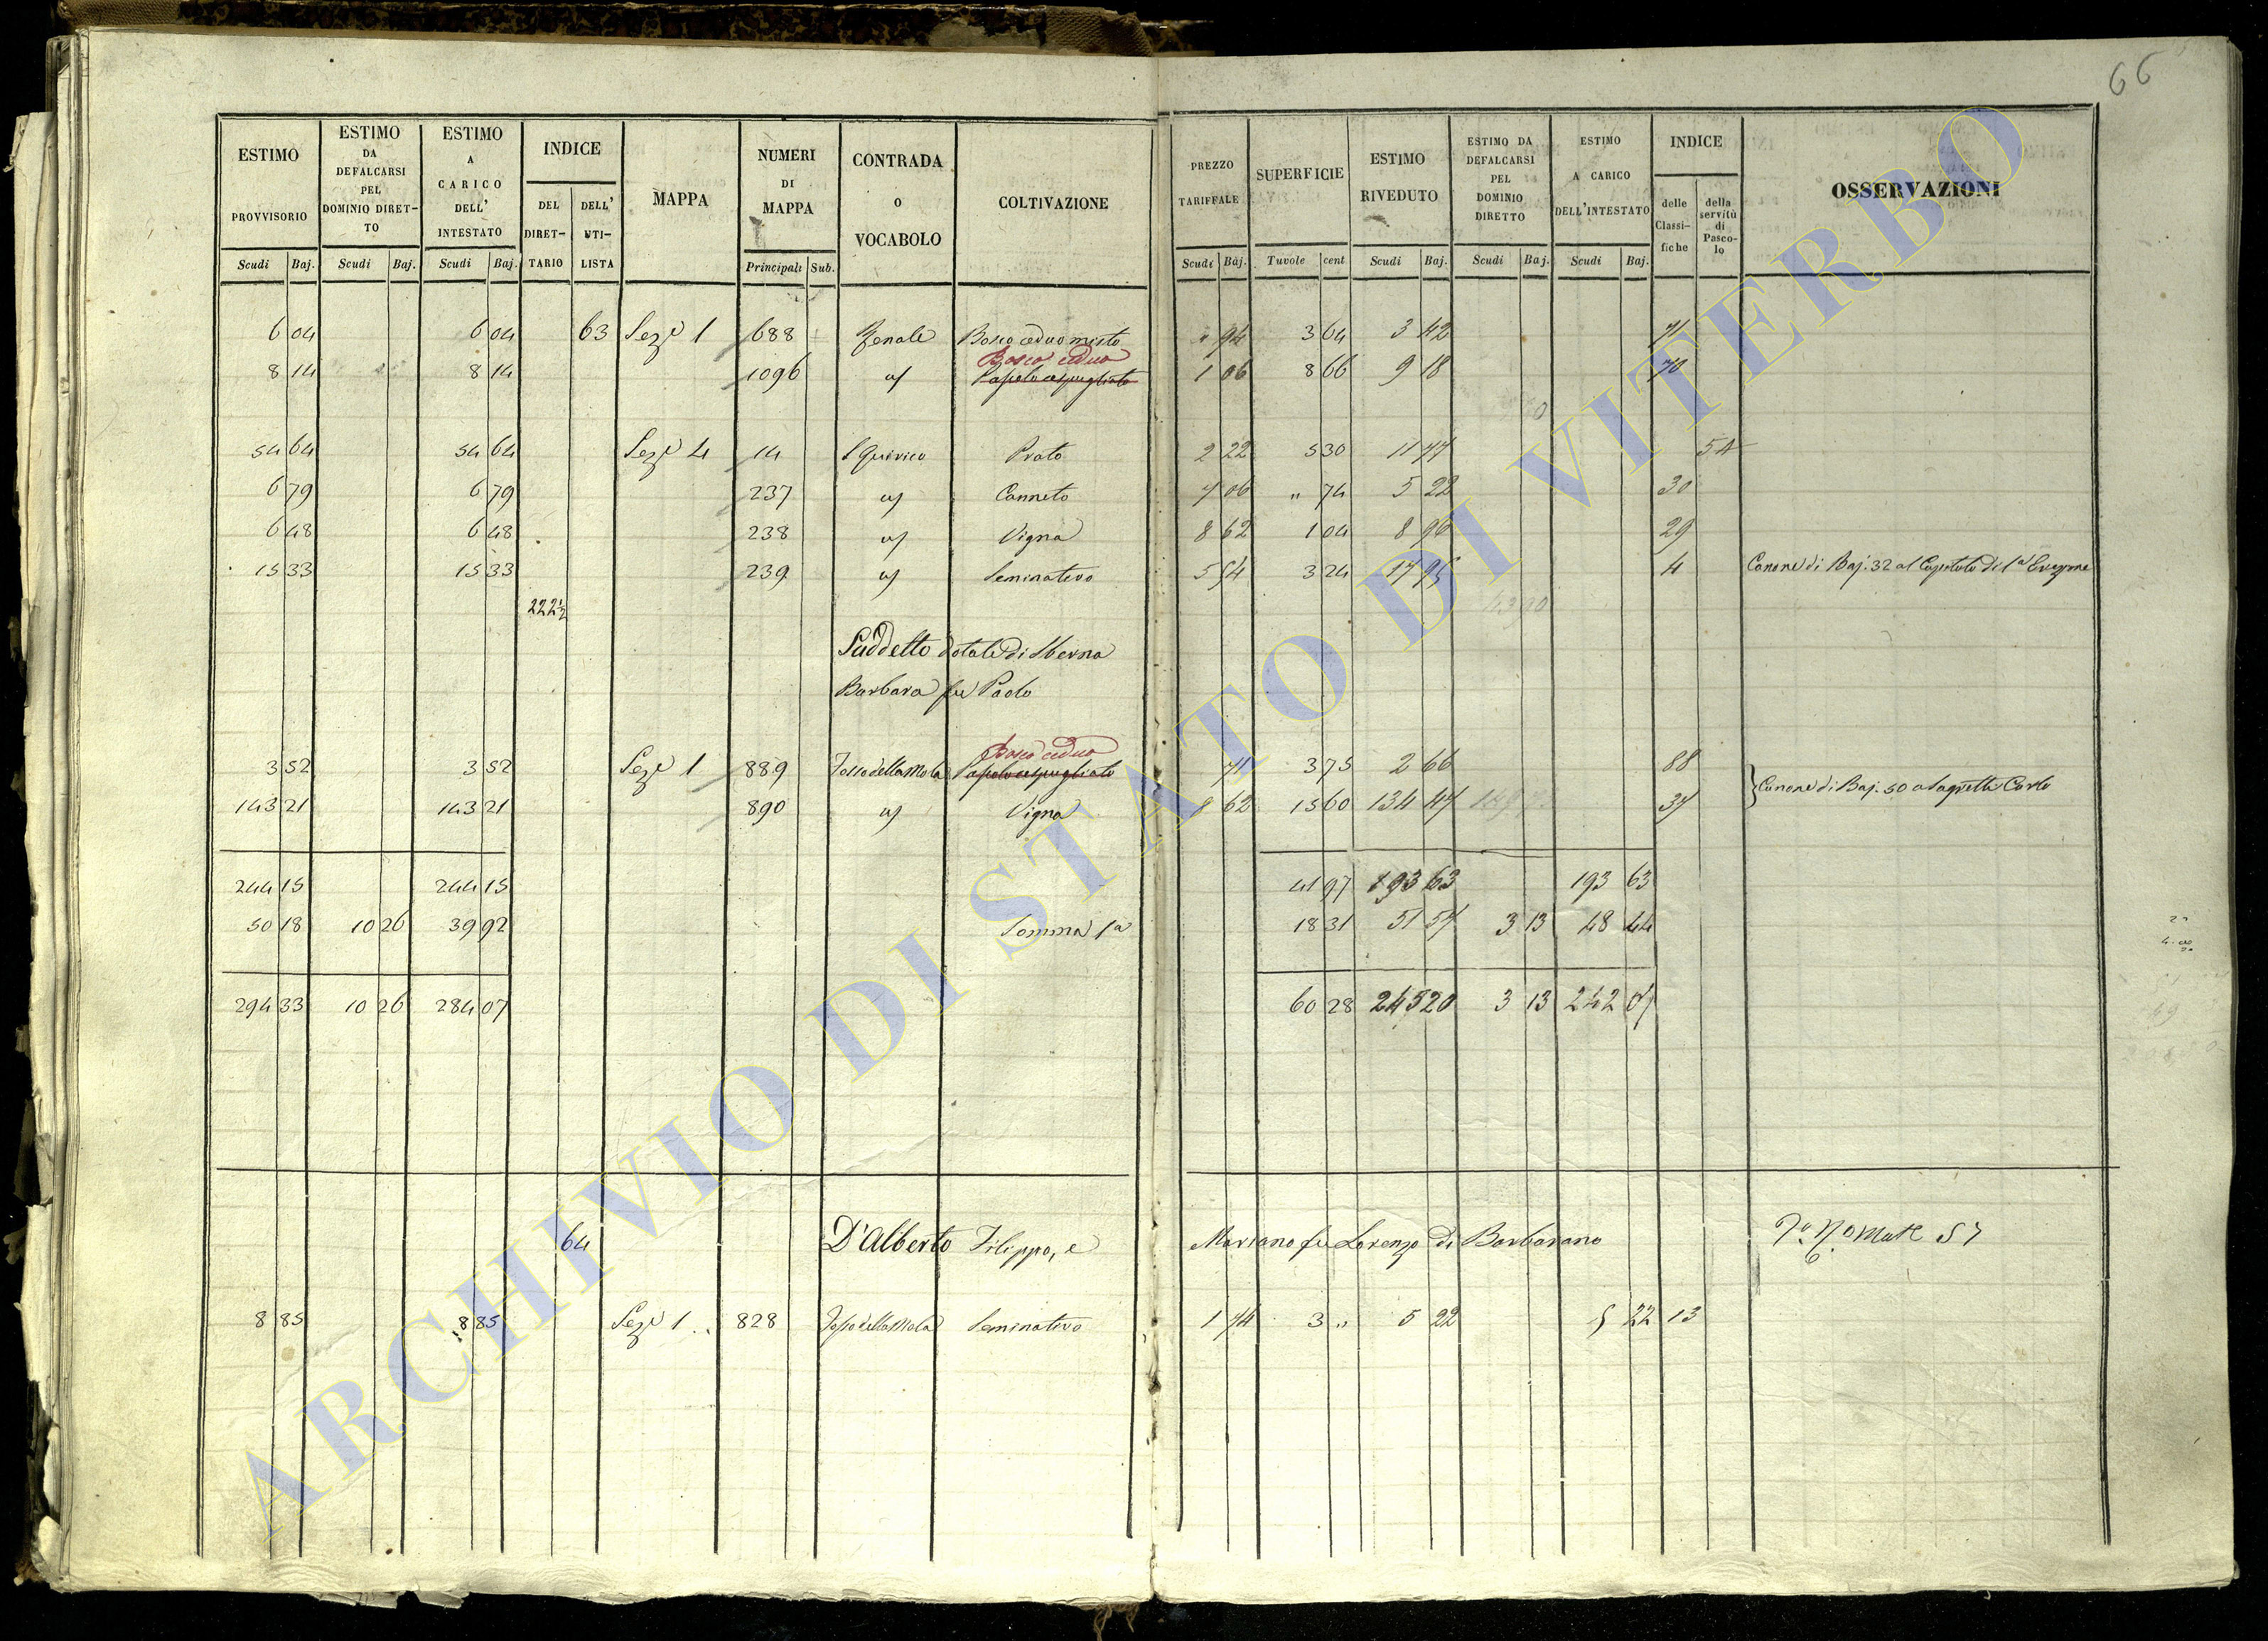 66
ESTIMO PROVVISORIO Scudi Baj.
ESTIMO DA DEFALCARSI PEL DOMINIO DIRET-TO Scudi Baj.
ESTIMO A CARICO DELL' INTESTATO Scudi Baj.
INDICE DEL DIRET-TARIO DELL' UTI-LISTA
MAPPA
NUMERI DI MAPPA Principali Sub.
CONTRADA O VOCABOLO
COLTIVAZIONE
PREZZO TARIFFALE Scudi Baj.
SUPERFICIE Tavole cent
ESTIMO RIVEDUTO Scudi Baj.
ESTIMO DA DEFALCARSI PEL DOMINIO DIRETTO Scudi Baj.
ESTIMO A CARICO DELL'INTESTATO Scudi Baj.
INDICE delle Classi-fiche della servitù di Pasco-lo
OSSERVAZIONI
6 04 6 04 63 Sez.e 1 688 Zenale Bosco ceduo misto " 94 3 64 3 42 71
Bosco ceduo
8 14 8 14 1096 a/ Pascolo cespugliato 1 06 8 66 9 18 70
54 64 54 64 Sez.e 4 14 S Quirico Prato 2 22 5 30 11 77 54
6 79 6 79 237 a/ Canneto 7 06 " 74 5 22 30
6 48 6 48 238 a/ Vigna 8 62 1 04 8 96 29
15 33 15 33 239 a/ Seminativo 5 54 3 24 17 95 4 Canone di Baj. 32 al Capitolo di
222½
Suddetto dotale di Sberna
Barbara fu Paolo
Bosco ceduo
3 52 3 52 Sez.e 1 889 Fosso della Mola Pascolo cespugliato 71 3 75 2 66 88
143 21 143 21 890 a/ Vigna 8 62 15 60 134 47 37 Canone di Baj. 50 a Sagretti Carlo
244 15 244 15 41 97 193 63 193 63
50 18 10 26 39 92 Somma 1a 18 31 51 57 3 13 48 44
294 33 10 26 284 07 60 28 245 20 3 13 242 07
64 D'Alberto Filippo, e Mariano fu Lorenzo di Barbarano
8 85 8 85 Sez.e 1 828 Fosso della Mola Seminativo 1 74 3 " 5 22 5 22 13
ARCHIVIO DI STATO DI VITERBO